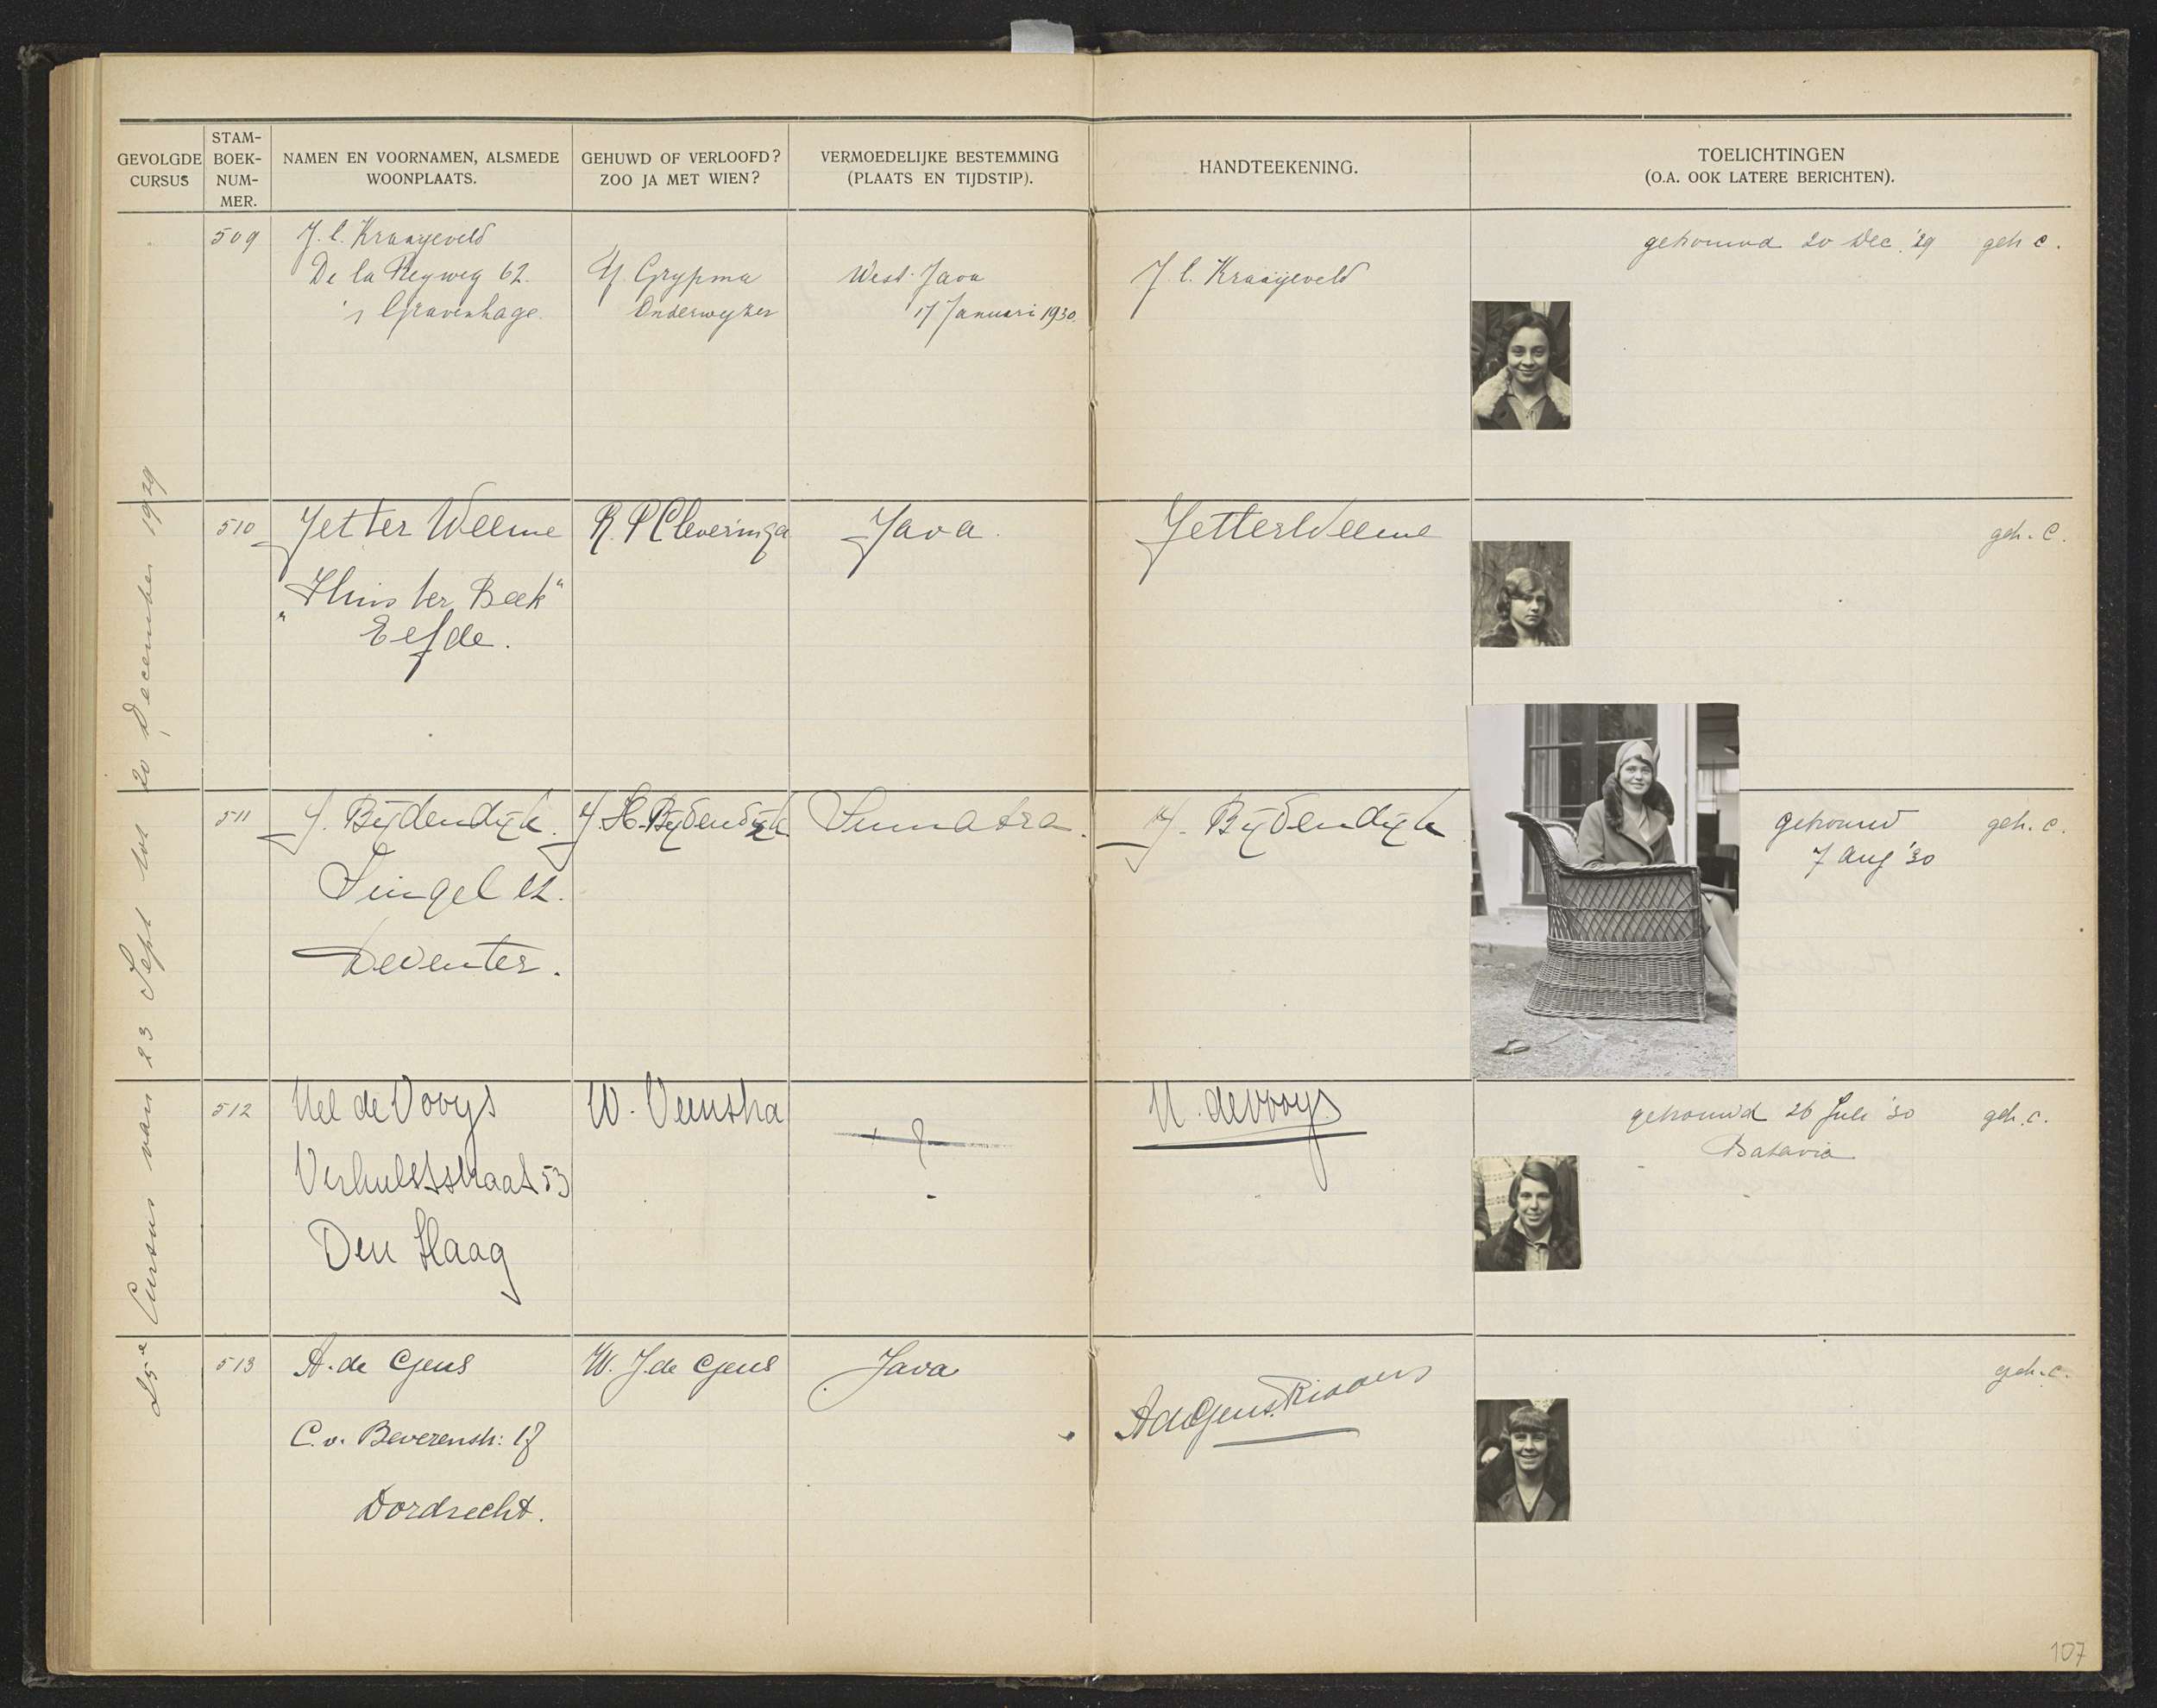 GEVOLGDE
CURSUS
STAM-
BOEK-
NUM-
MER.
NAMEN EN VOORNAMEN, ALSMEDE
WOONPLAATS.
GEHUWD OF VERLOOFD?
ZOO JA MET WIEN?
VERMOEDELIJKE BESTEMMING
(PLAATS EN TIJDSTIP).
HANDTEEKENING.
TOELICHTINGEN
(O.A. OOK LATERE BERICHTEN).
25e Cursus van 23 Sept tot 20 December 1929
509
J. C. Kraayeveld
De la Reyweg 62.
's Gravenhage.
Y. Grypma
Onderwyzer
West-Java
17 Januari 1930.
J. C. Kraayeveld
getrouwd 20 Dec. '29 geh c.
510
Jet ter Weeme
"Huis ter Beek"
Eefde.
R. P Cleveringa
Java.
JetterWeeme
geh. C.
511
J. Bijdendijk.
Singel 12.
Deventer.
J. H. Bijdendijk
Sumatra.
J. Bijdendijk
getrouwd
7 Aug '30
geh. c.
512
Nel de Vooys
Verhulststraat 53
Den Haag
W. Veenstra
?
N. de Vooys
getrouwd 26 Juli '30
Batavia
geh. c.
513
A. de Geus
C. v. Beverenstr: 17
Dordrecht.
W. J. de Geus
Java
AdeGeus. Ridders
geh. c.
107